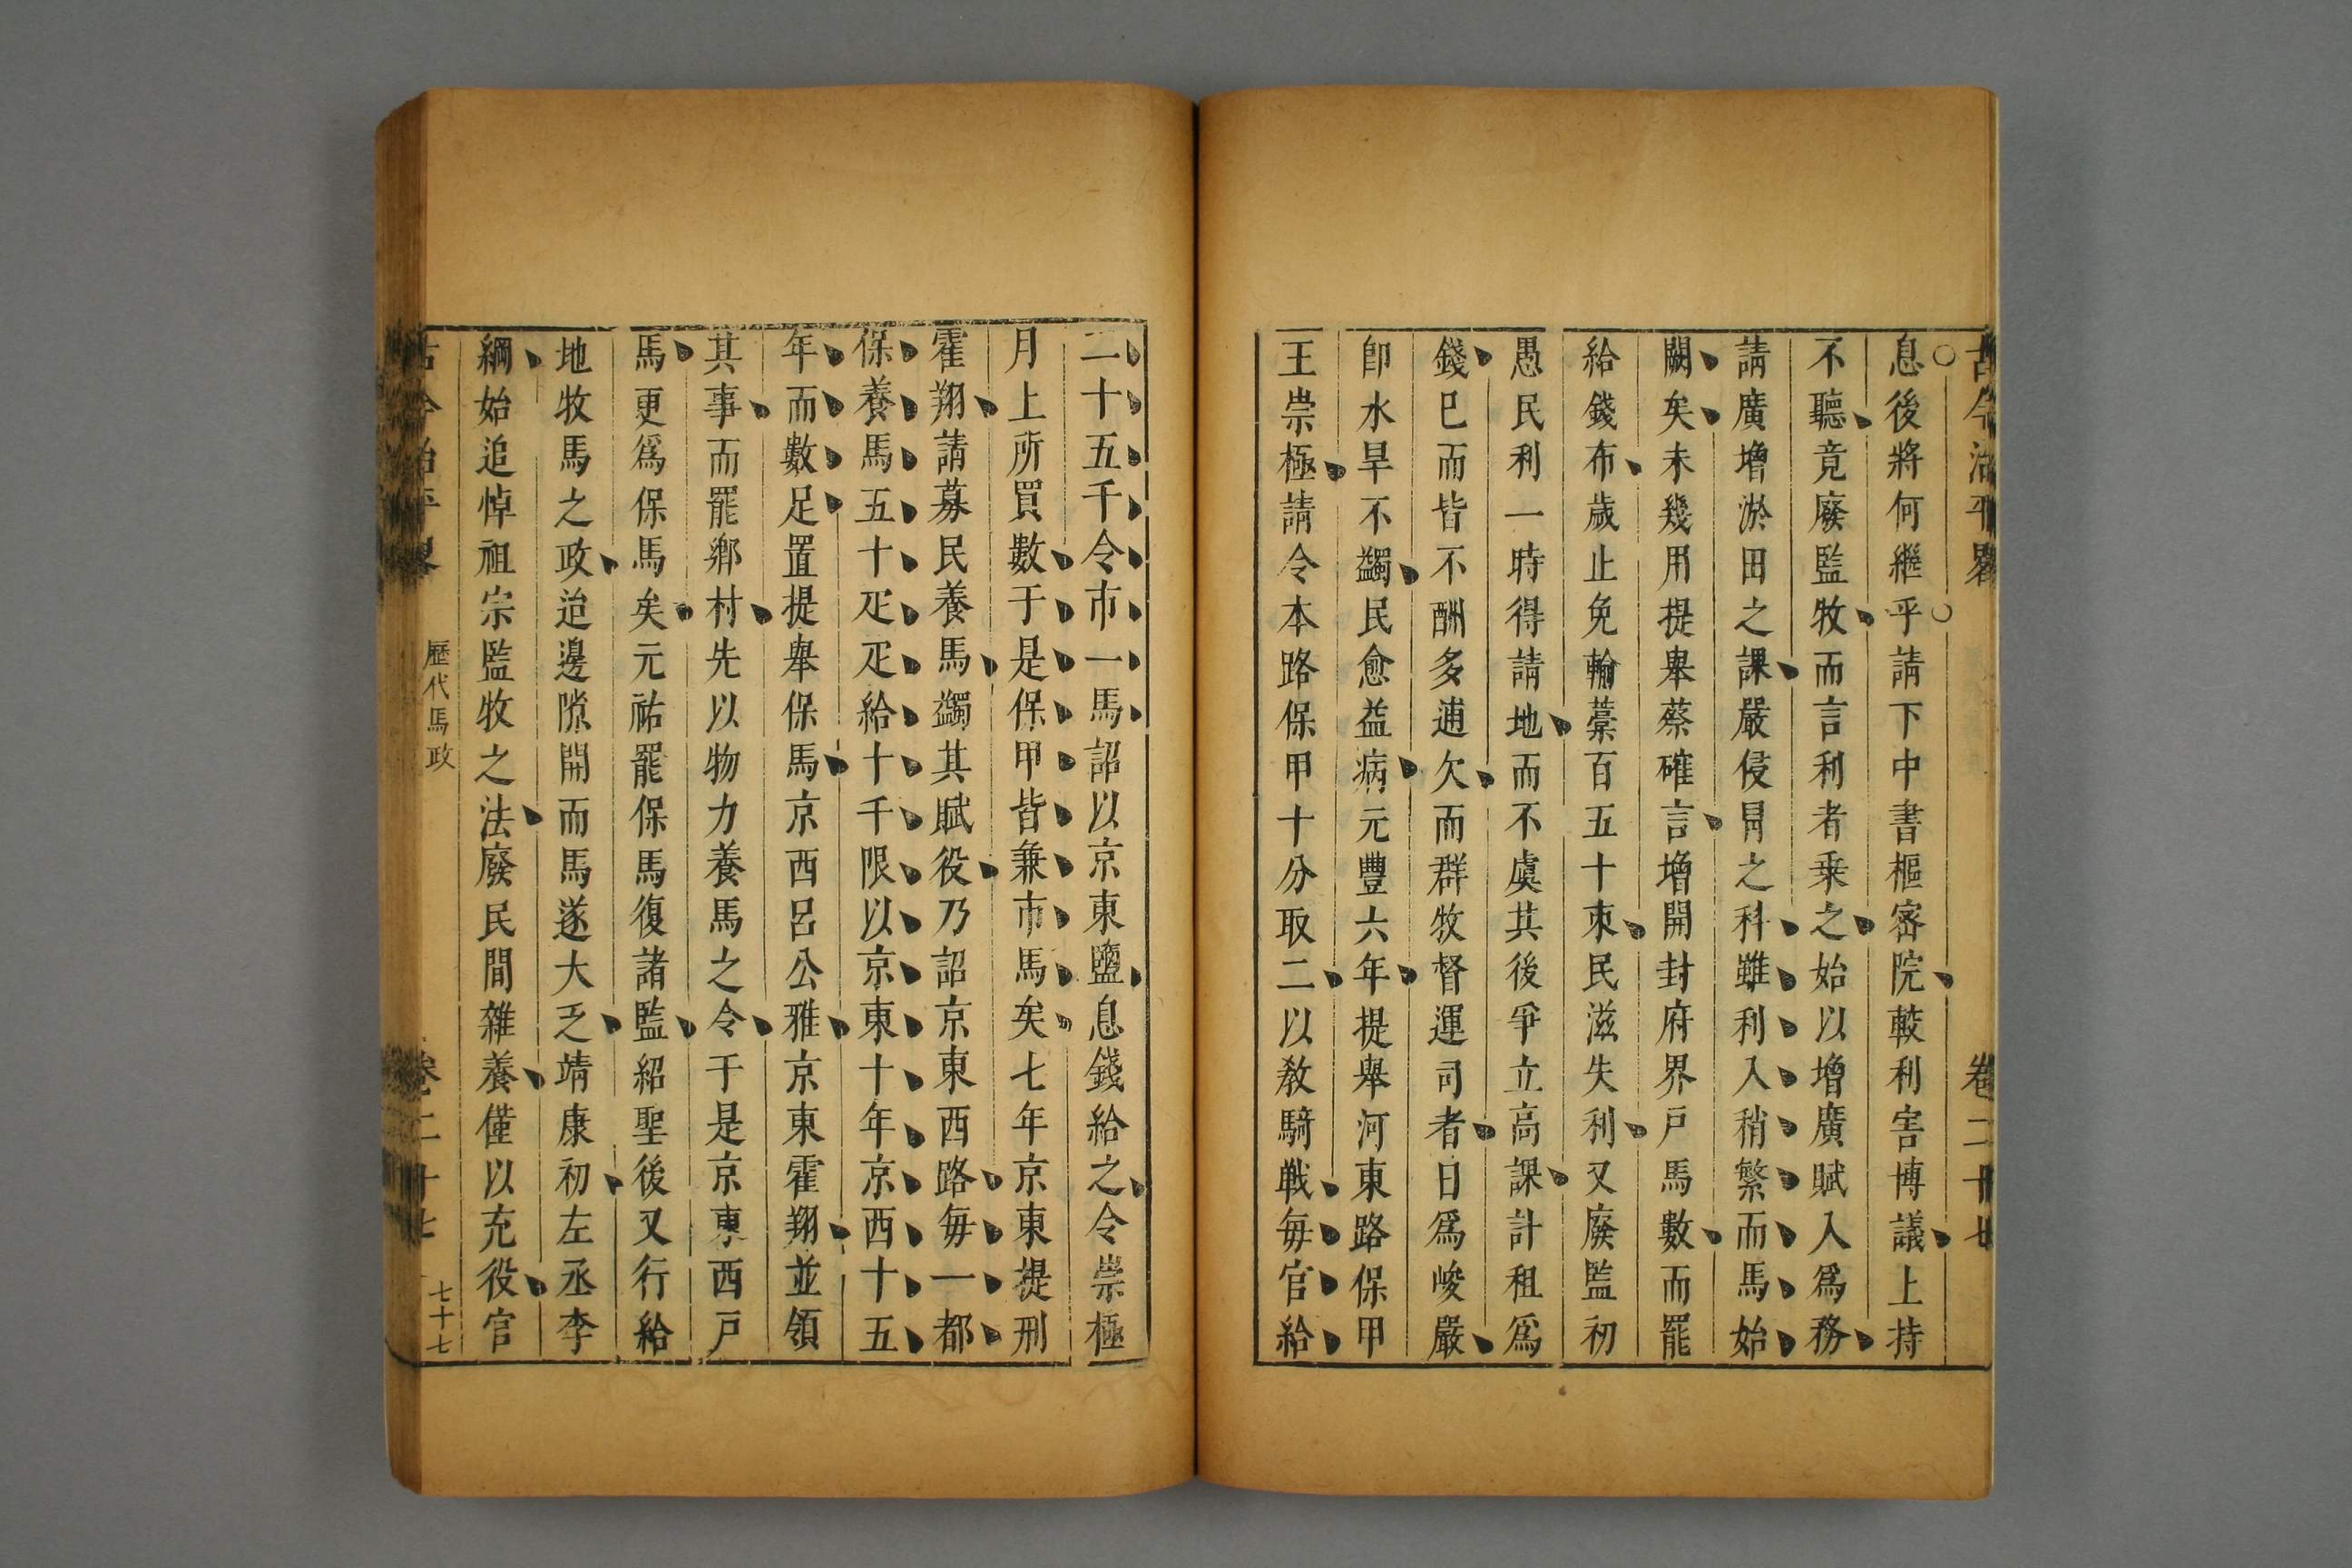 古今治平畧　卷二十七
息後將何繼乎請下中書樞密院較利害博議上持
不聽竟廢監牧而言利者乗之始以增廣賦入爲務
請廣增淤田之課嚴侵冐之科雖利入稍繁而馬始
闕矣未幾用提舉蔡確言增開封府界戸馬數而罷
給錢布歲止免輸藁百五十束民滋失利又廢監初
愚民利一時得請地而不虞其後爭立高課計租爲
錢巳而皆不酬多逋欠而群牧督運司者日爲峻嚴
卽水旱不蠲民愈益病元豐六年提舉河東路保甲
王崇極請令本路保甲十分取二以敎騎戦每官給
二十五千令市一馬詔以京東鹽息錢給之令崇極
月上所買數于是保甲皆兼市馬矣七年京東提刑
霍翔請募民養馬蠲其賦役乃詔京東西路每一都
保養馬五十疋疋給十千限以京東十年京西十五
年而數足置提舉保馬京西呂公雅京東霍翔並領
其事而罷鄉村先以物力養馬之令于是京東西戸
馬更爲保馬矣元祐罷保馬復諸監紹聖後又行給
地牧馬之政迨邊隙開而馬遂大乏靖康初左丞李
綱始追悼祖宗監牧之法廢民間雜養僅以充役官
古今治平畧　歷代馬政　卷二十七　七十七